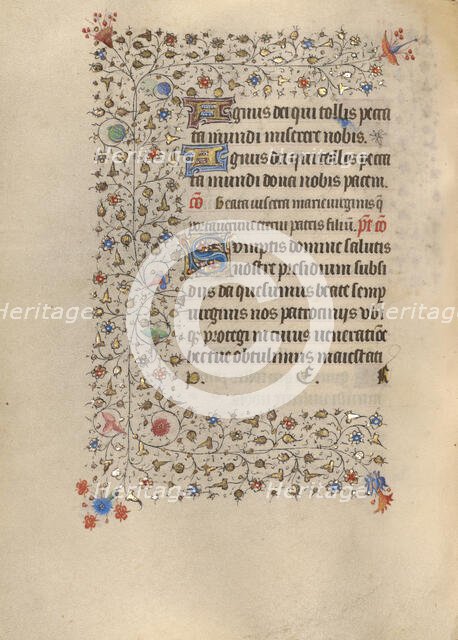 Agnus dei qui tollis pecca
ta mundi miserere nobis.
Agnus dei qui tollis pecca
ta mundi dona nobis pacem.
co Beata viscera marie virginis q
portaverunt eterni patris filium. pt co
Sumptis domine salutis
nostre presidium subsi
diis da quesumus beate semp
virginis nos patrocinijs vbi
protegi in cuius veneratioe
hec tue obtulimus maiestati
P. E. K
Heritage
Heritage
Heritage
Heritage
Heritage
©